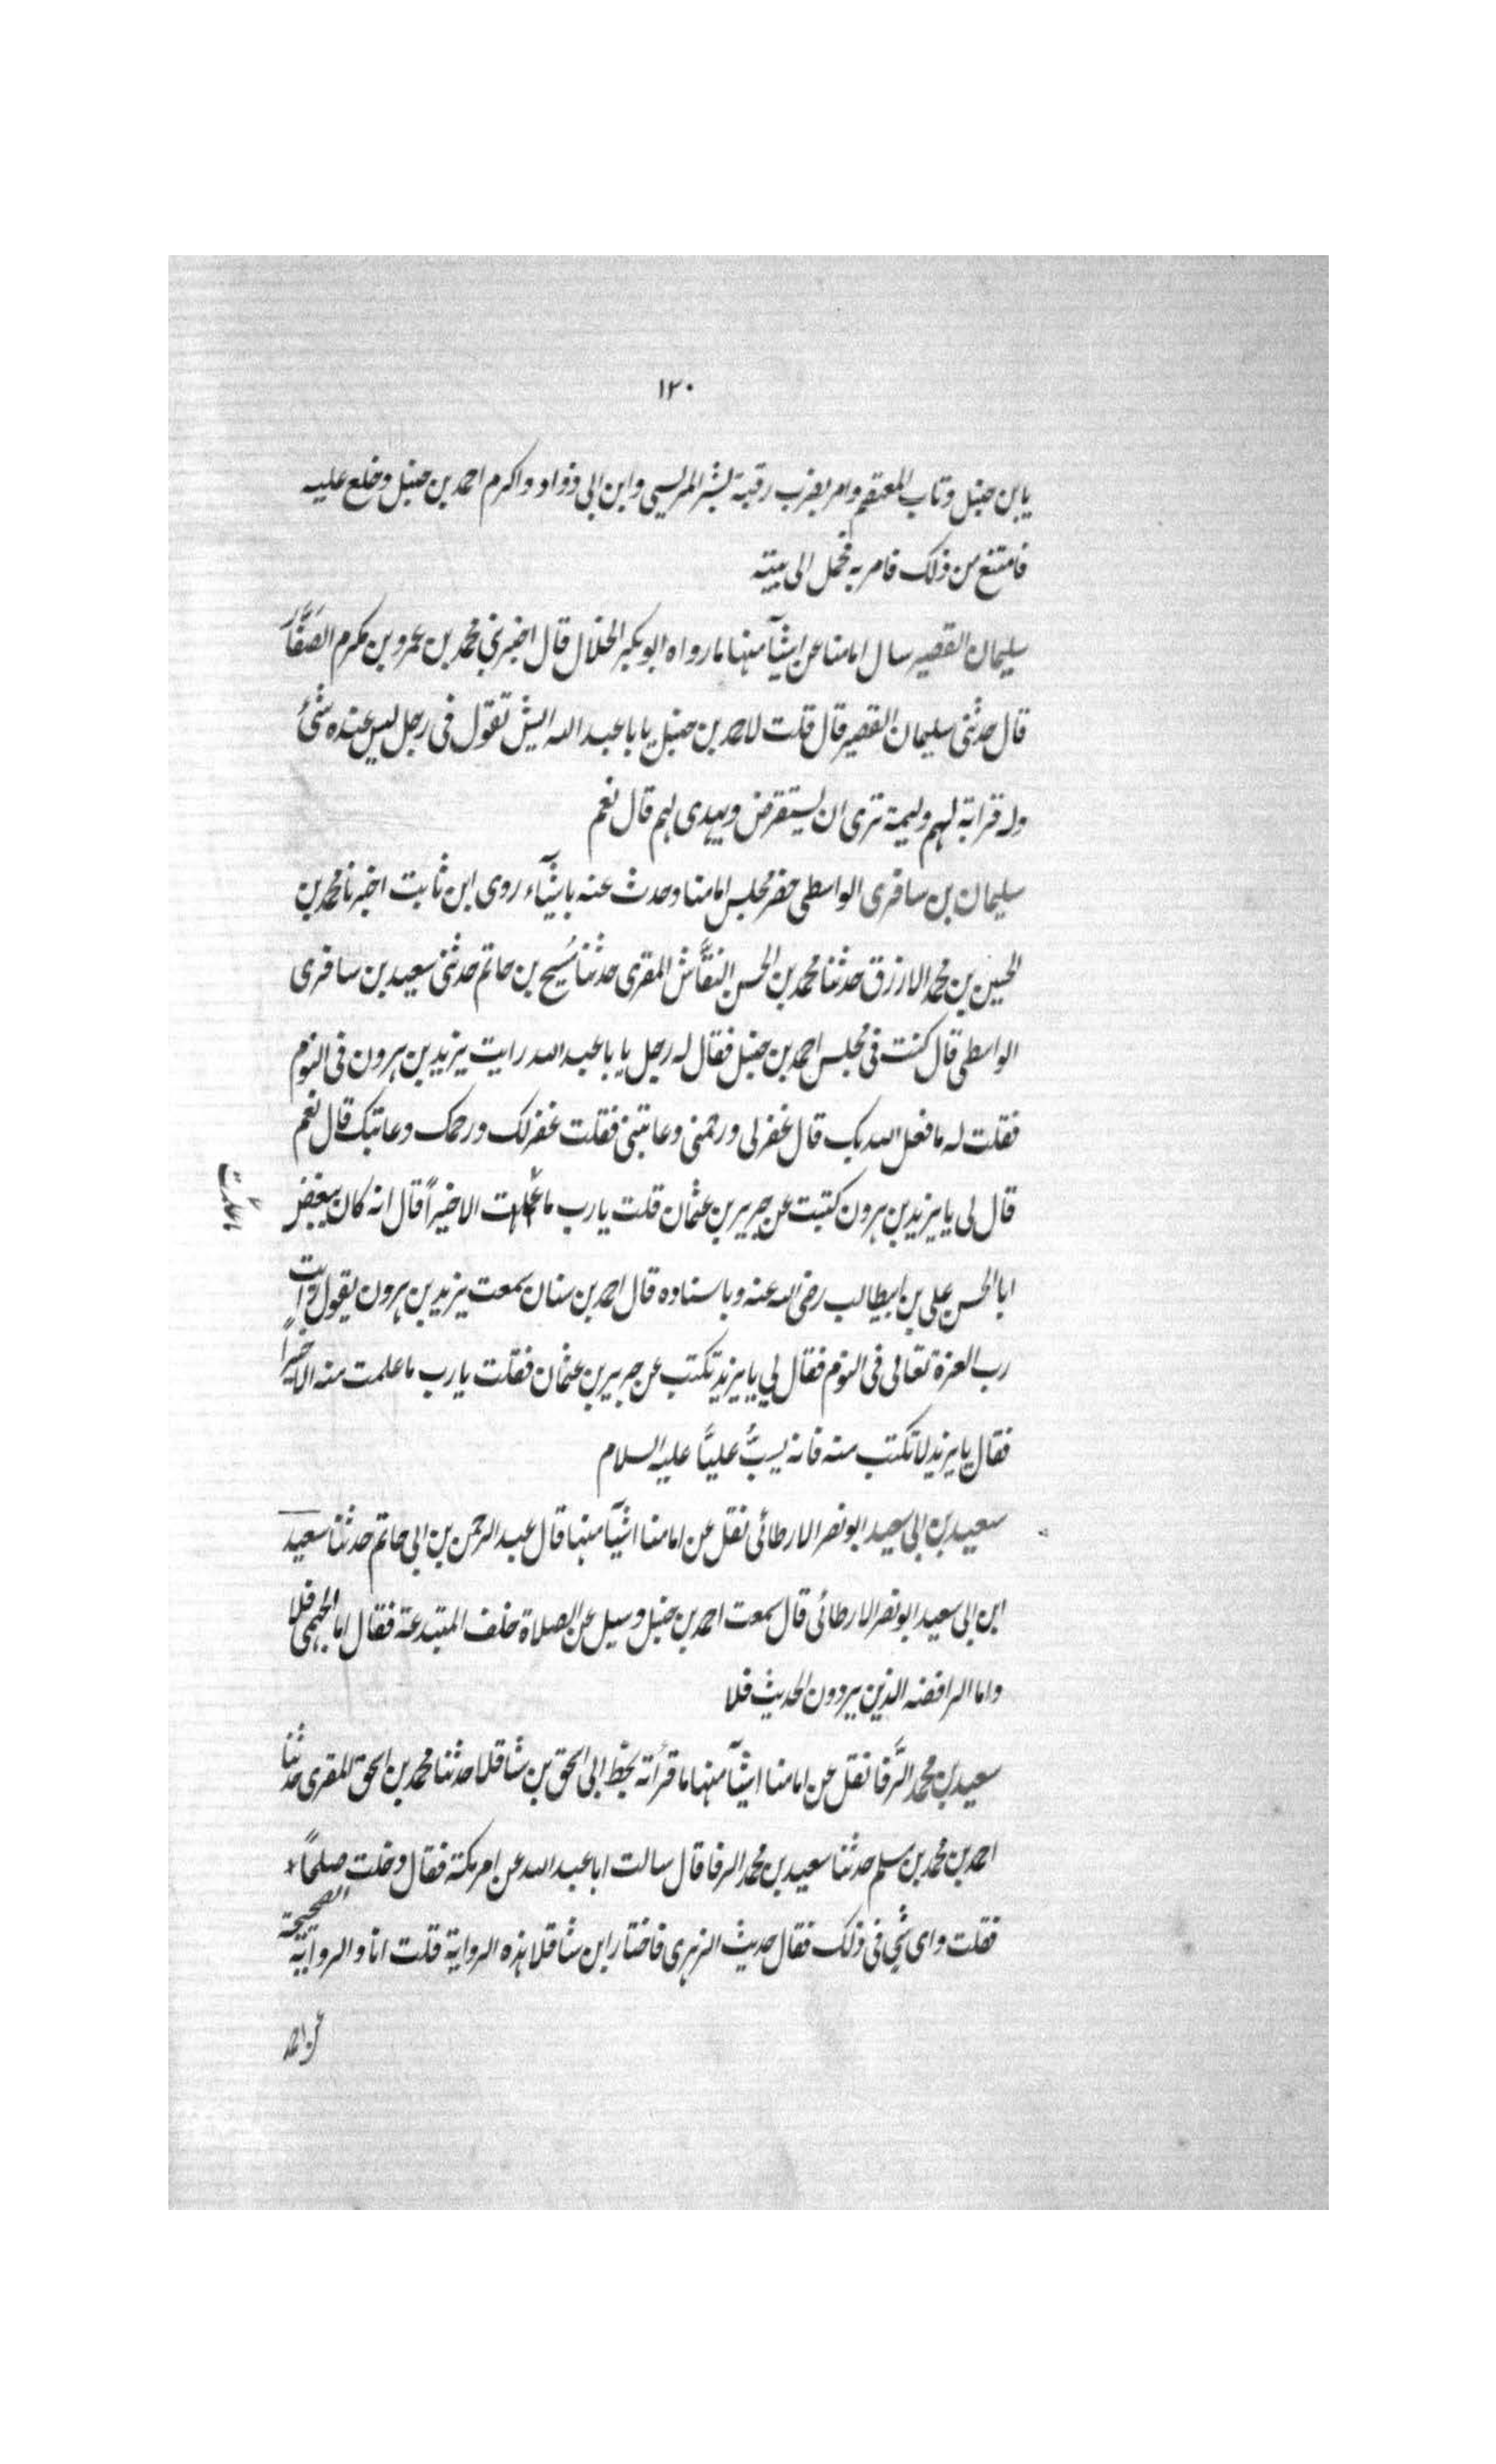 ١٢٠
يابن حنبل وتاب المعتصم وامر بضرب رقبة بشر المريسى وابن ابى دؤاد واكرم احمد بن حنبل وخلع عليه
فامتنع من ذلك فامر به فحمل الى بيته
سليمان القصير سال امامنا عن اشيآ منها ما رواه ابو بكر الخلال قال اخبرني محمد بن عمرو بن مكرم الصَفَّار
قال حدثنى سليمان القصير قال قلت لاحمد بن حنبل يابا عبد الله ايش تقول فى رجل ليس عنده شئ
وله قرابة لهم وليمة ترى ان يستقرض ويهدى لهم قال نعم
سليمان بن سافرى الواسطى حضر مجلس امامنا وحدث عنه باشيآء روى ابن ثابت اخبرنا محمد بن
الحسين بن محمد الازرق حدثنا محمد بن الحسن النقَّاش المقرى حدثنا مُسَيح بن حاتم حدثنى سعيد بن سافرى
الواسطى قال كنت فى مجلس احمد بن حنبل فقال له رجل يابا عبد الله رايت يزيد بن هرون فى النوم
فقلت له ما فعل الله بك قال غفر لى ورحمنى وعاتبنى فقلت غفر لك ورحمك وعاتبك قال نعم
قال لى يا يزيد بن هرون كتبت عن جرير بن عثمان قلت يا رب ما علمت الا خيراً قال انه كان يبغض
ابا الحسن على بن ابيطالب رضى الله عنه وباسناده قال احمد بن سنان سمعت يزيد بن هرون يقول رايت
رب العزة تعالى فى النوم فقال لي يا يزيد تكتب عن جرير بن عثمان فقلت يا رب ما علمت منه الا خيراً
فقال يا يزيد لا تكتب منه فانه يسبُّ عليًّا عليه السلام
سعيد بن ابى سعيد ابو نصر الارطائى نقل عن امامنا اشيآ منها قال عبد الرحمن بن ابى حاتم حدثنا سعيد
ابن ابى سعيد ابو نصر الارطائى قال سمعت احمد بن حنبل وسيل عن الصلاة خلف المبتدعة فقال اما الجهمى فلا
واما الرافضه الذين يردون الحديث فلا
سعيد بن محمد الرَّفا نقل عن امامنا اشيآ منها ما قرأته بخطّ ابى اسحق بن شاقلا حدثنا محمد بن اسحق المقرى حدثنا
احمد بن محمد بن سلم حدثنا سعيد بن محمد الرفا قال سالت ابا عبد الله عن امر مكة فقال دخلت صلحاً
فقلت واى شي فى ذلك فقال حديث الزهرى فاختار ابن شاقلا هذه الرواية قلت انا والرواية الصحيحة